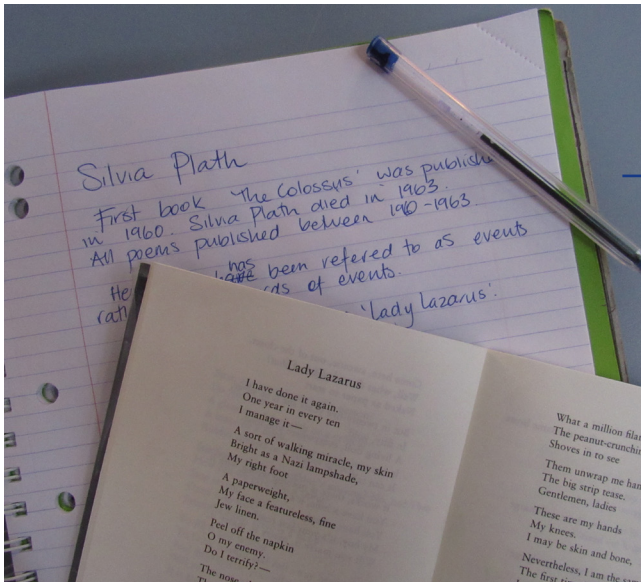 Silvia Plath
First book 'The Colossus' was
in 1960. Silvia Plath died in 1963.
All poems published between 1960-1963.
has
been refered to as events
of events.
'Lady Lazarus'.
Lady Lazarus
I have done it again.
One year in every ten
I manage it—
A sort of walking miracle, my skin
Bright as a Nazi lampshade,
My right foot
A paperweight,
My face a featureless, fine
Jew linen.
Peel off the napkin
O my enemy.
Do I terrify?—
The nose,
What a million
The peanut-crunching
Shoves in to see
Them unwrap me
The big strip tease.
Gentlemen, ladies
These are my hands
My knees.
I may be skin and bone,
Nevertheless, I am the
The first